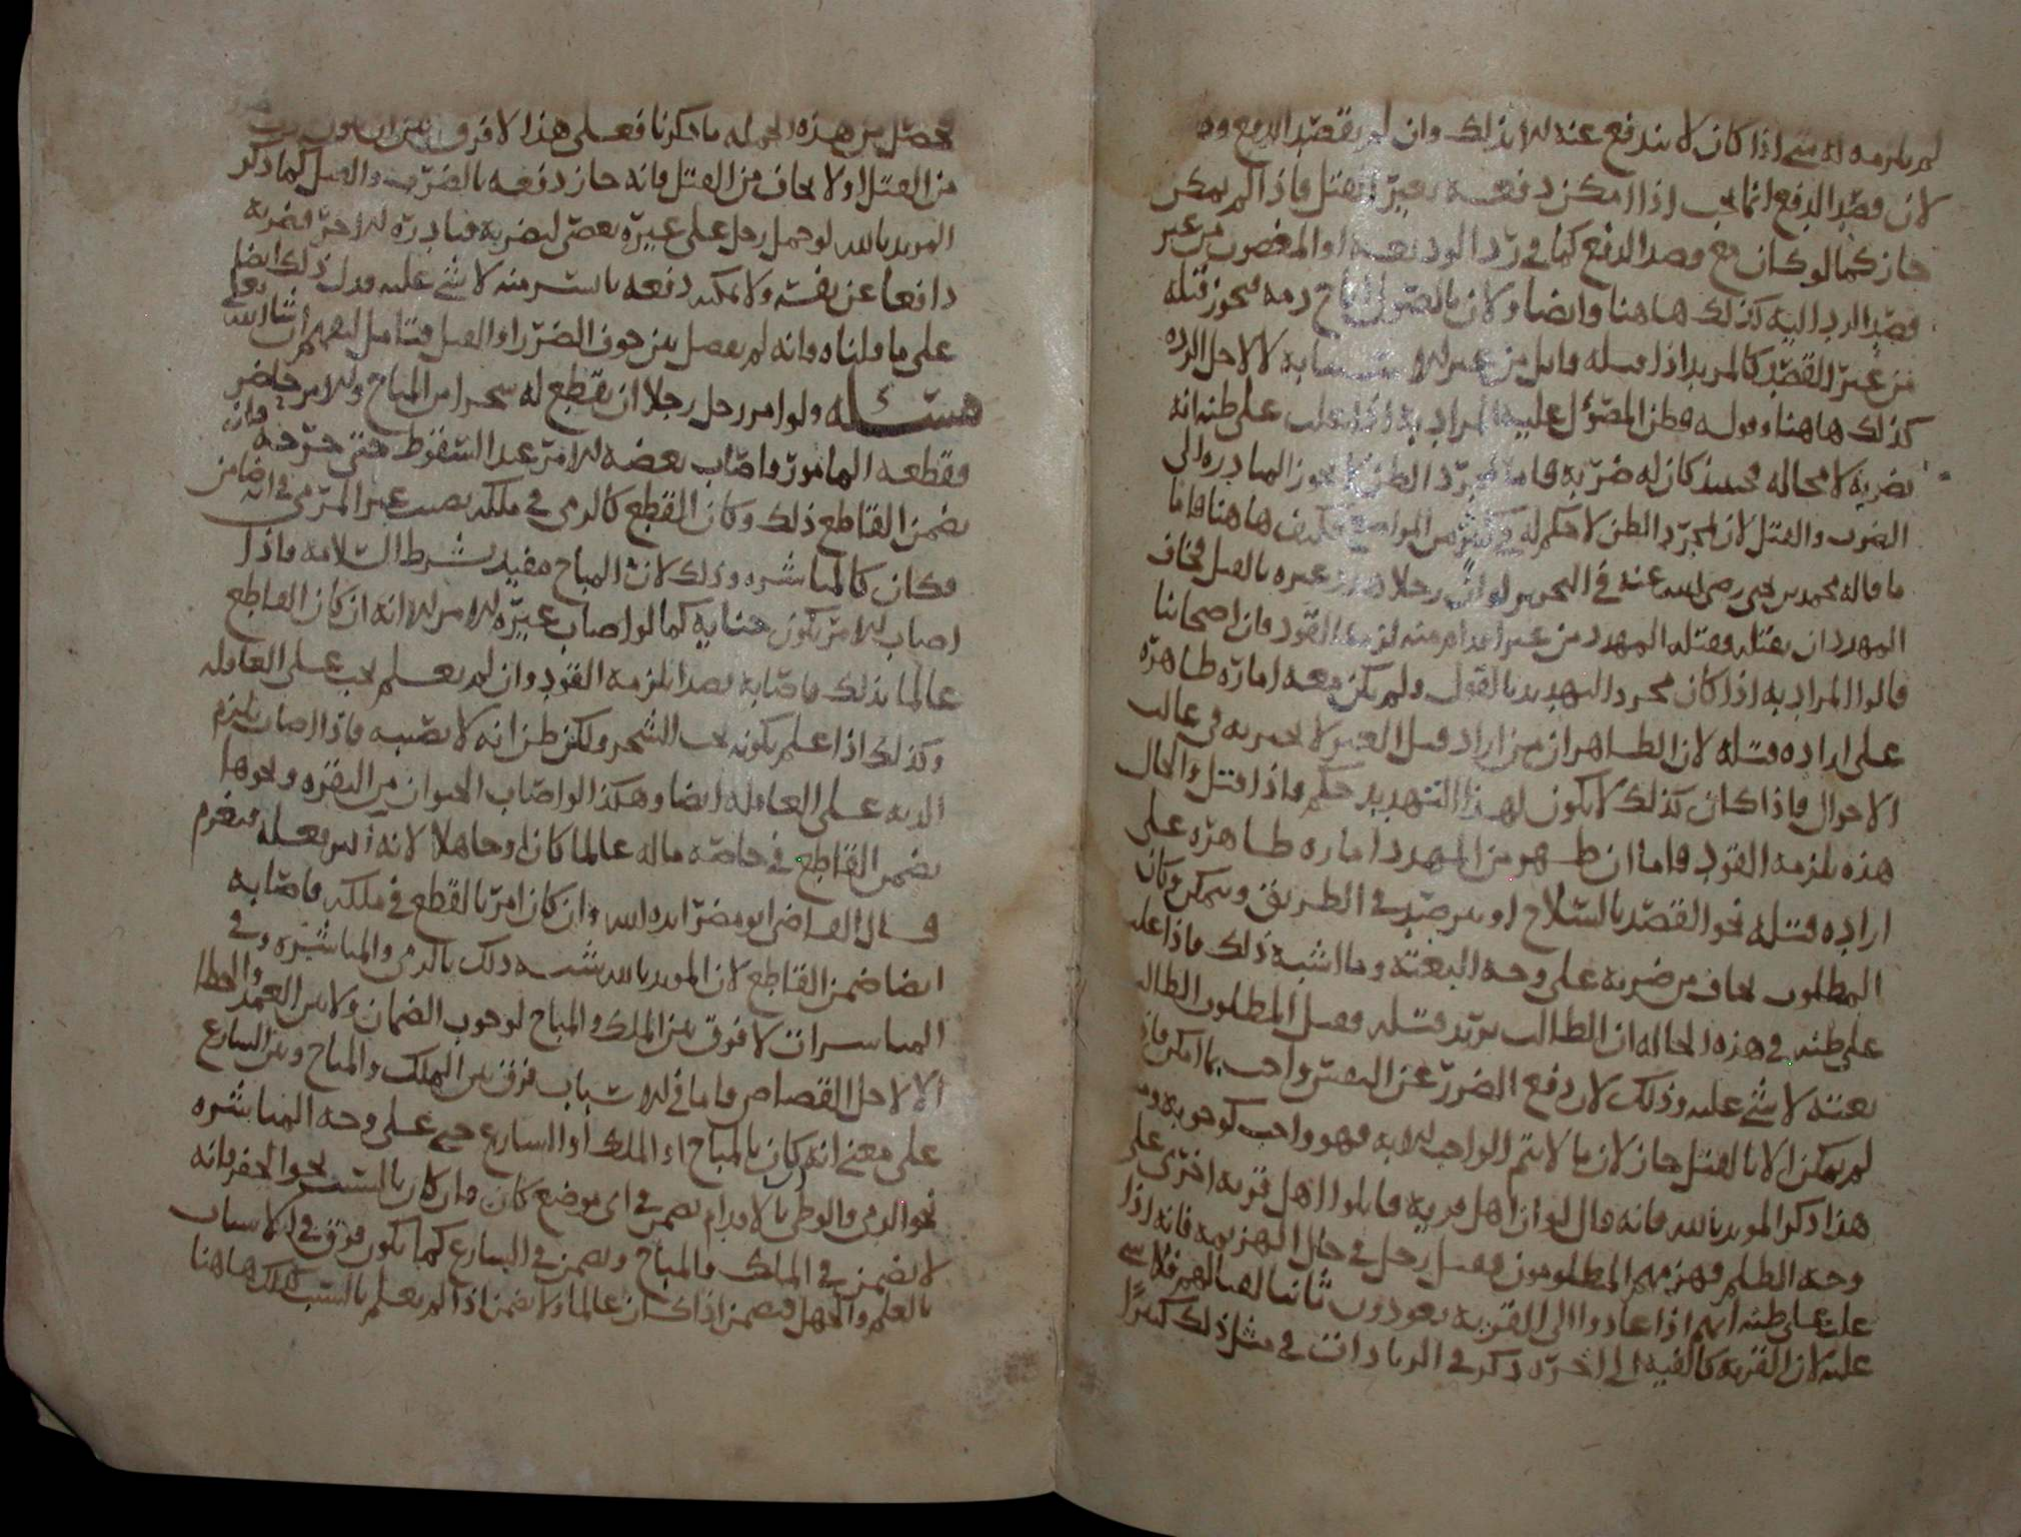 لم يلزمه له شي اذا كان لا يندفع عنه الا بذلك وان لم يقصد الدفع
لان قصد الدفع انما يجب اذا امكن دفعه بغير القتل فاذا لم يمكن
جاز كما لو كان مع قصد الدفع كما في رد الوديعه او المغصوب من غير
قصد الرد اليه كذلك هاهنا وايضا ولان بالصول اباح دمه فيجوز قتله
من غير القصد كالمرتد اذا قتله قاتل من غير لا لاجل الرده
كذلك هاهنا وقوله فظن المصؤل عليه المراد به اذا غلب على ظنه انه
يضربه لا محاله فحينئذ كان له ضربه فاما مجرد الظن لا يجوز المبادره الى
الضرب والقتل لان مجرد الظن لا حكم له في كثير من المواضع فكيف هاهنا فاما
ما قاله محمد بن يحيى رضي الله عنه في التحرير لو ان رجلا هدد غيره بالقتل فخاف
المهدد ان يقتله فقتله المهدد من غير اقدام منه لزمه القود فان اصحابنا
قالوا المراد به اذا كان مجرد التهديد بالقول ولم يكن معه اماره ظاهره
على اراده قتله لان الظاهر ان من اراد قتل الغير لا يخبر به في غالب
الاحوال فاذا كان كذلك لا يكون لهذا التهديد حكم فاذا قتل والحال
هذه يلزمه القود فاما ان ظهر من المهدد اماره ظاهره على
اراده قتله نحو القصد بالسلاح او يترصد في الطريق ويمكن وكان
المطلوب يخاف من ضربه على وجه البغته وما اشبه ذلك فاذا غلب
على ظنه في هذه الحاله ان الطالب يريد قتله فقتل المطلوب الطالب
بغته لا شي عليه وذلك لان دفع الضرر عن النفس واجب بما امكن فاذا
لم يمكن الا بالقتل جاز لان ما لا يتم الواجب الا به فهو واجب كوجوبه
هذا ذكر المويد بالله فانه قال لو ان اهل قريه قاتلوا اهل قريه اخرى على
وجه الظلم فهزمهم المظلومون فقتل رجل في حال الهزيمه فانه اذا
غلب على ظنه انهم اذا عادوا الى القريه يعودون ثانيا لقتالهم فلا شي
عليه لان القريه كالفيه الى اخره ذكر في الزيادات في مثل ذلك كثيرا
فحصل من هذه الجمله ما ذكرنا فعلى هذا لا فرق بين ان
من القتل او لا يخاف من القتل فانه جاز دفعه بالضرب والقتل كما ذكر
المويد بالله لو حمل رجل على غيره بعصى ليضربه فبادره الاخر فضربه
دافعا عن نفسه ولا يمكنه دفعه بايسر منه لا شي عليه فدل ذلك ايضا
على ما قلناه وانه لم يفصل بين خوف الضرر او القتل فتامل لتفهم ان شا الله تعلى
مسئله ولو امر رجل رجلا ان يقطع له شجرا من المباح والامر حاضر
فقطعه المامور فاصاب بعضه الامر عند السقوط حتى جرحه فانه
يضمن القاطع ذلك وكان القطع كالرمي في ملكه يصيب غير المرمي في انه ضامن
فكان كالمباشره وذلك لان المباح مقيد بشرط السلامه فاذا
اصاب الامر يكون جنايه كما لو اصاب غير الامر الا انه ان كان القاطع
عالما بذلك فاصابه قصدا يلزمه القود وان لم يعلم يجب على العاقله
وكذلك اذا علم بكونه تحت الشجر ولكن ظن انه لا يصيبه فاذا اصاب يلزم
الديه على العاقله ايضا وهكذا لو اصاب الحيوان من البقره ونحوها
يضمن القاطع في خاصه ماله عالما كان او جاهلا لانه بفعله فيغرم
قال القاضي ابو مضر ايده الله وان كان امر بالقطع في ملكه فاصابه
ايضا ضمن القاطع لان المويد بالله شبه ذلك بالرمي والمباشره وفي
المباشرات لا فرق بين الملك والمباح لوجوب الضمان ولا بين العمد والخطا
الا لاجل القصاص فاما في الاسباب فرق بين الملك والمباح وبين الشارع
على معنى انه كان بالمباح او الملك او الشارع جنى على وجه المباشره
نحو الرمي والوطي بالاقدام يضمن في اي موضع كان وان كان بالسبب نحو الحفر فانه
لا يضمن في الملك والمباح ويضمن في الشارع كما يكون فرق في الاسباب
بالعلم والجهل فيضمن اذا كان عالما ولا يضمن اذا لم يعلم بالسبب كذلك هاهنا